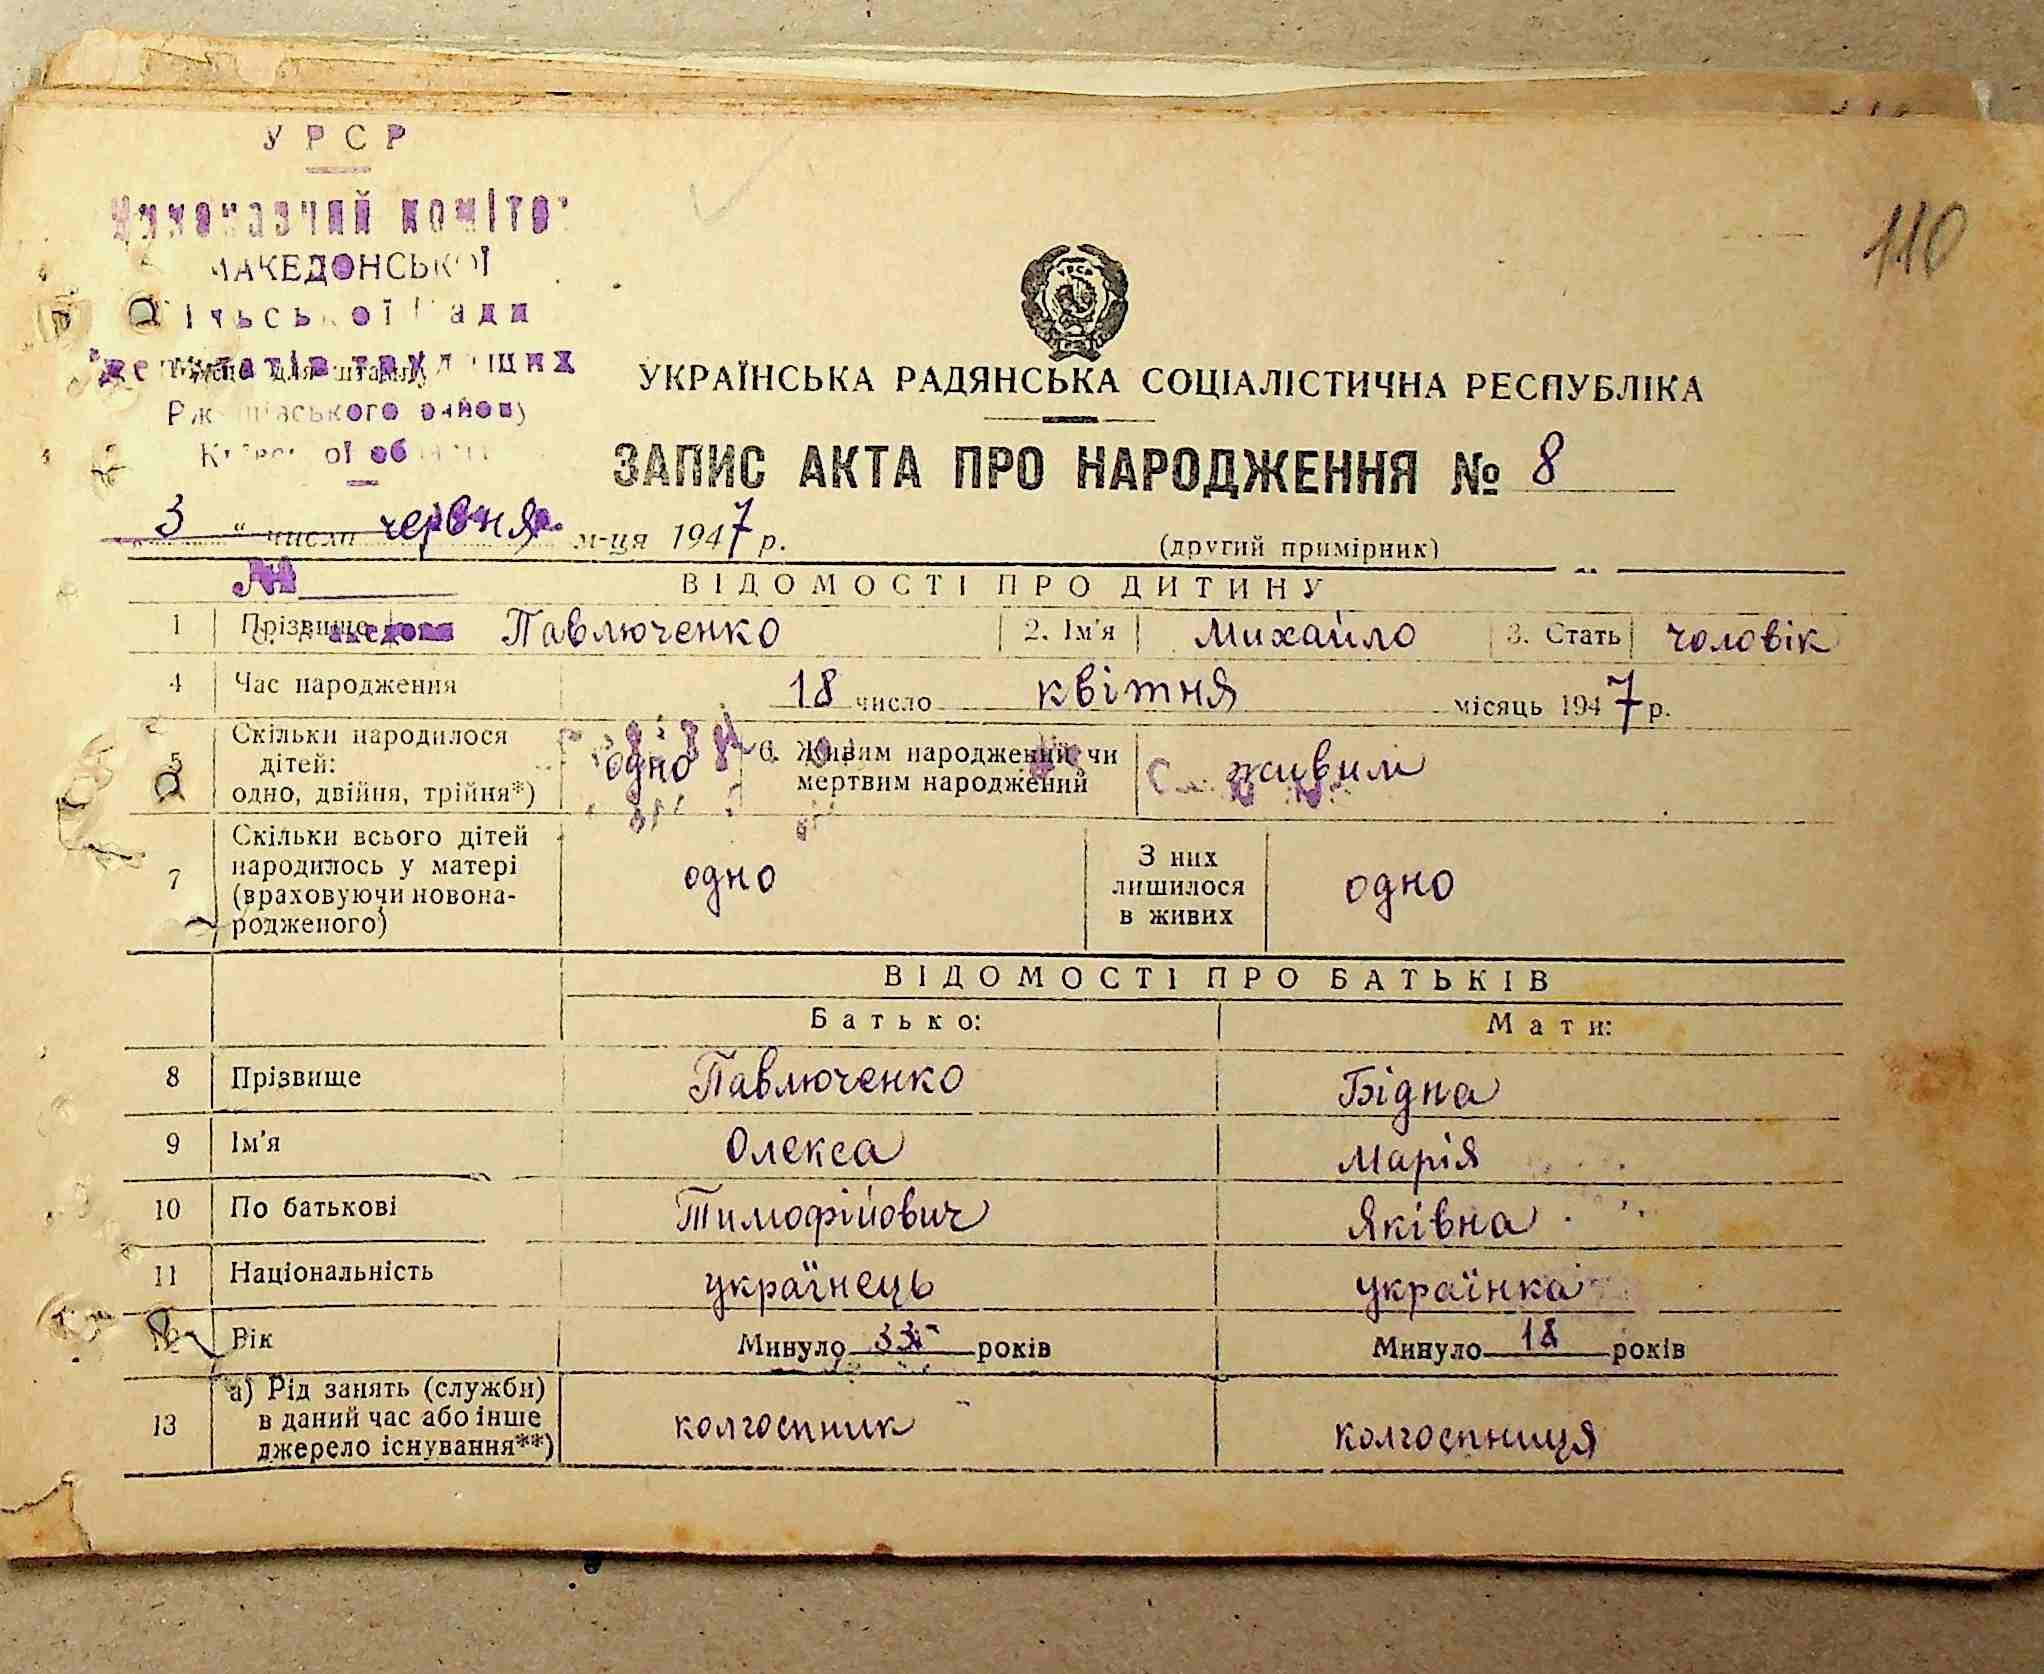 УРСР
Виконавчий комітет
МАКЕДОНСЬКОЇ
Сільської Ради
депутатів трудящих
Ржищівського району
Київської області
110
УРСР
УКРАЇНСЬКА РАДЯНСЬКА СОЦІАЛІСТИЧНА РЕСПУБЛІКА
ЗАПИС АКТА ПРО НАРОДЖЕННЯ № 8
3 " число червня м-ця 1947 р.
(другий примірник)
№
ВІДОМОСТІ ПРО ДИТИНУ
1 Прізвище Павлюченко 2. Ім'я Михайло 3. Стать чоловік
4 Час народження 18 число квітня місяць 1947 р.
5 Скільки народилося дітей: одно, двійня, трійня*) одно 6. Живим народжений чи мертвим народжений живим
7 Скільки всього дітей народилось у матері (враховуючи новонародженого) одно З них лишилося в живих одно
ВІДОМОСТІ ПРО БАТЬКІВ
Батько: Мати:
8 Прізвище Павлюченко Бідна
9 Ім'я Олекса Марія
10 По батькові Тимофійович Яківна
11 Національність українець українка
12 Вік Минуло років Минуло 18 років
13 а) Рід занять (служби) в даний час або інше джерело існування**) колгоспник колгоспниця